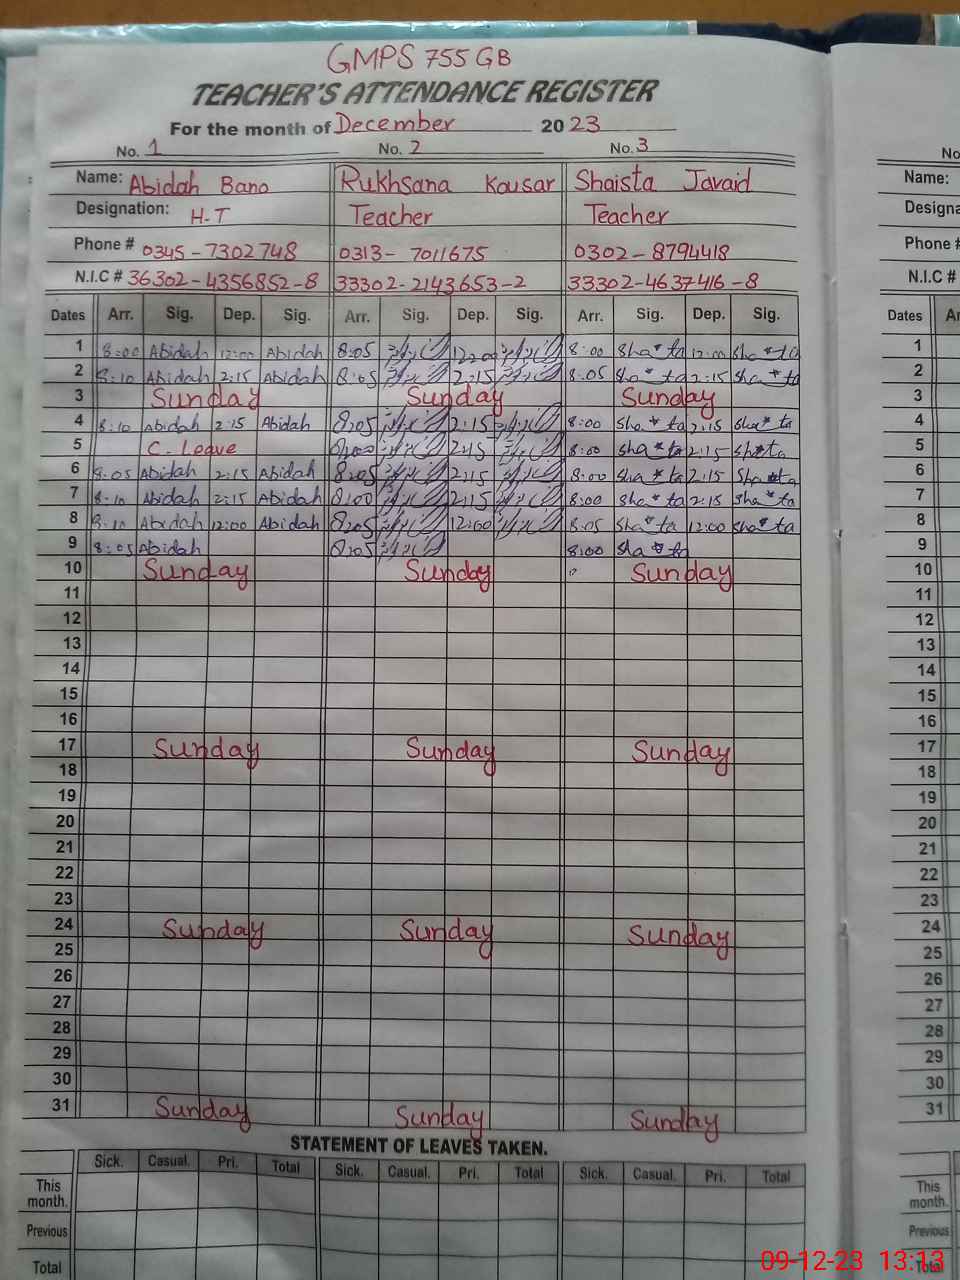 GMPS 755 GB
TEACHER'S ATTENDANCE REGISTER
For the month of December 2023
No. 1 No. 2 No. 3 No
Name: Abidah Bano Rukhsana Kousar Shaista Javaid Name:
Designation: H-T Teacher Teacher Designa
Phone # 0345-7302748 0313-7011675 0302-8794418 Phone #
N.I.C # 36302-4356852-8 33302-2143653-2 33302-4637416-8 N.I.C #
Dates Arr. Sig. Dep. Sig. Arr. Sig. Dep. Sig. Arr. Sig. Dep. Sig. Dates
1 8:00 Abidah 12:00 Abidah 8:05 12:00 8:00 Sha*ta 12:00 Sha*ta 1
2 8:10 Abidah 2:15 Abidah 8:05 2:15 8:05 Sha*ta 2:15 Sha*ta 2
3 Sunday Sunday Sunday 3
4 8:10 Abidah 2:15 Abidah 8:05 2:15 8:00 Sha*ta 2:15 Sha*ta 4
5 C. Leave 8:00 2:15 8:00 Sha*ta 2:15 Sha*ta 5
6 8:05 Abidah 2:15 Abidah 8:05 2:15 8:00 Sha*ta 2:15 Sha*ta 6
7 8:10 Abidah 2:15 Abidah 8:00 2:15 8:00 Sha*ta 2:15 Sha*ta 7
8 8:10 Abidah 12:00 Abidah 8:05 12:00 8:05 Sha*ta 12:00 Sha*ta 8
9 8:05 Abidah 8:05 8:00 Sha*ta 9
10 Sunday Sunday Sunday 10
11 11
12 12
13 13
14 14
15 15
16 16
17 Sunday Sunday Sunday 17
18 18
19 19
20 20
21 21
22 22
23 23
24 Sunday Sunday Sunday 24
25 25
26 26
27 27
28 28
29 29
30 30
31 Sunday Sunday Sunday 31
STATEMENT OF LEAVES TAKEN.
Sick. Casual. Pri. Total Sick. Casual. Pri. Total Sick. Casual. Pri. Total
This month. This month.
Previous Previous
Total Total
09-12-23 13:13